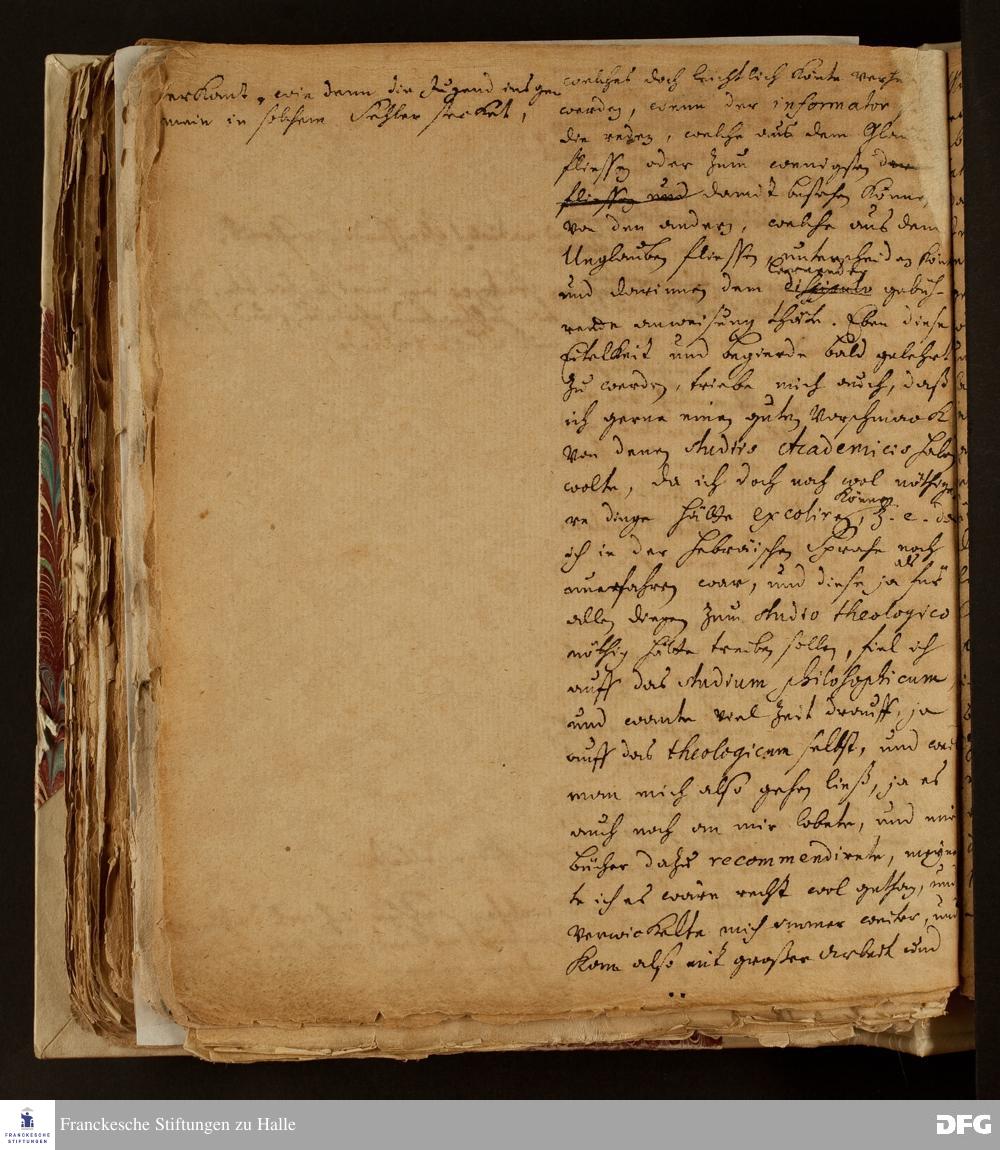 erkant, wie denn die Jugend ins ge-
mein in solchem Fehler stecket,
welches doch leichtlich könte verhü
werden, wenn der informator
die reden, welche aus dem Glau
fliessen oder zum wenigsten
fliessen und damit bestehen können
von den andern, welche aus dem
Unglauben fliessen, unterscheiden könte
und darinnen dem discipulo gebüh-
rende anweisung thäte. Eben diese
Eitelkeit und begierde bald gelehrt
zu werden, triebe mich auch, daß
ich gerne einen guten Vorschmack
von denen studiis Academicis haben
wolte, da ich doch noch wol nöthige-
re dinge hätte excoliren können, z. e. da
ich in der Hebräischen Sprache noch
unerfahren war, und diese ja als für
allen dingen zum studio theologico
nöthig hätte treiben sollen, fiel ich
auff das studium philosophicum
und wante viel Zeit drauff, ja
auff das theologicum selbst, und weil
man mich also gehen ließ, ja es
auch noch an mir lobete, und mir
bücher dazu recommendirete, meyne-
te ich es wäre recht wol gethan, und
verwickelte mich immer weiter, und
kam also mit großer Arbeit und
Franckesche Stiftungen zu Halle
FRANCKESCHE
STIFTUNGEN
DFG